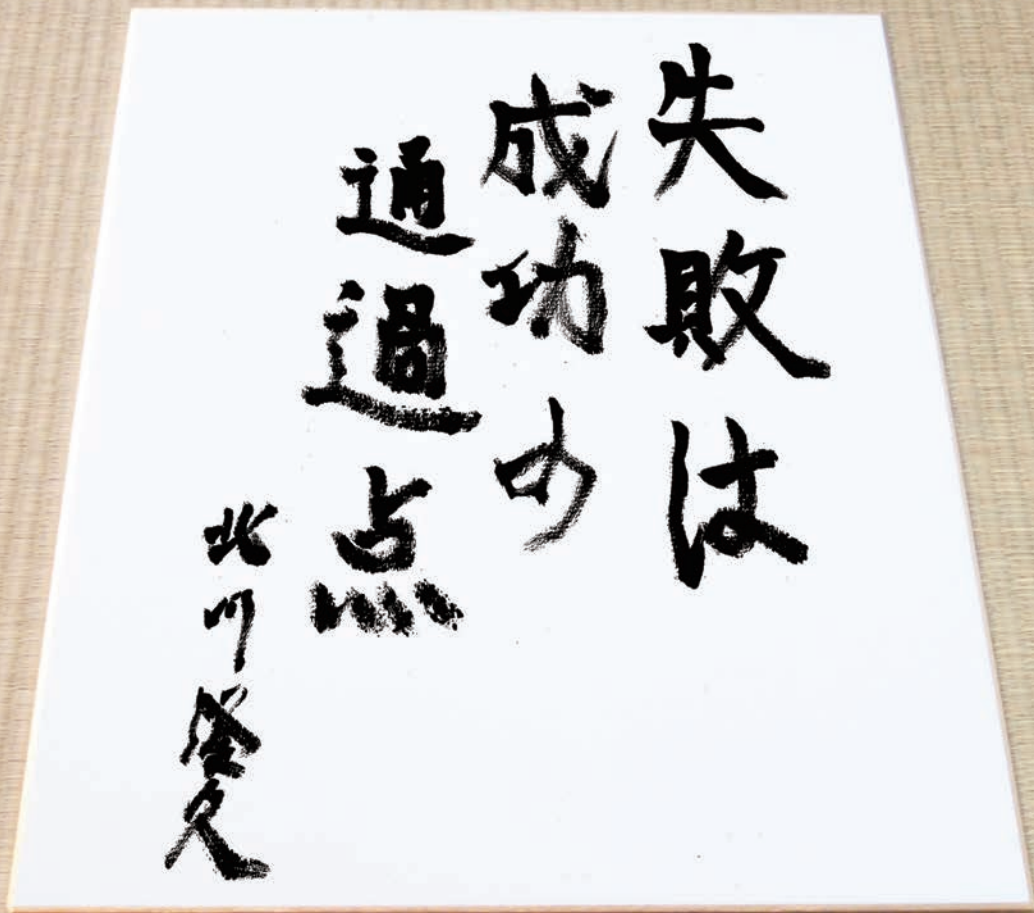 失敗は
成功の
通過点
北川隆久